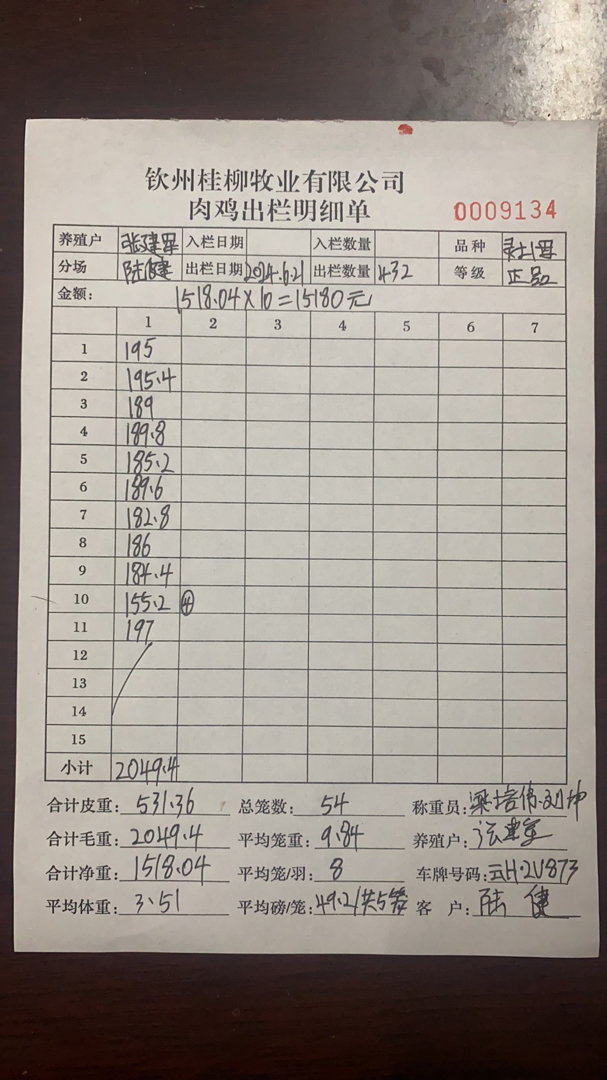 钦州桂柳牧业有限公司
肉鸡出栏明细单 0009134
养殖户 张建军 入栏日期 入栏数量 品种
分场 陆健 出栏日期 2024.6.21 出栏数量 432 等级 正品
金额: 1518.04×10=15180元
1 2 3 4 5 6 7
1 195
2 195.4
3 189
4 189.8
5 185.2
6 189.6
7 182.8
8 186
9 184.4
10 155.2 ④
11 197
12
13
14
15
小计 2049.4
合计皮重: 531.36 总笼数: 54 称重员: 梁培伟
合计毛重: 2049.4 平均笼重: 9.84 养殖户: 张建军
合计净重: 1518.04 平均笼/羽: 8 车牌号码: 云H·2U873
平均体重: 3.51 平均磅/笼: 49.2/共5笼 客户: 陆健